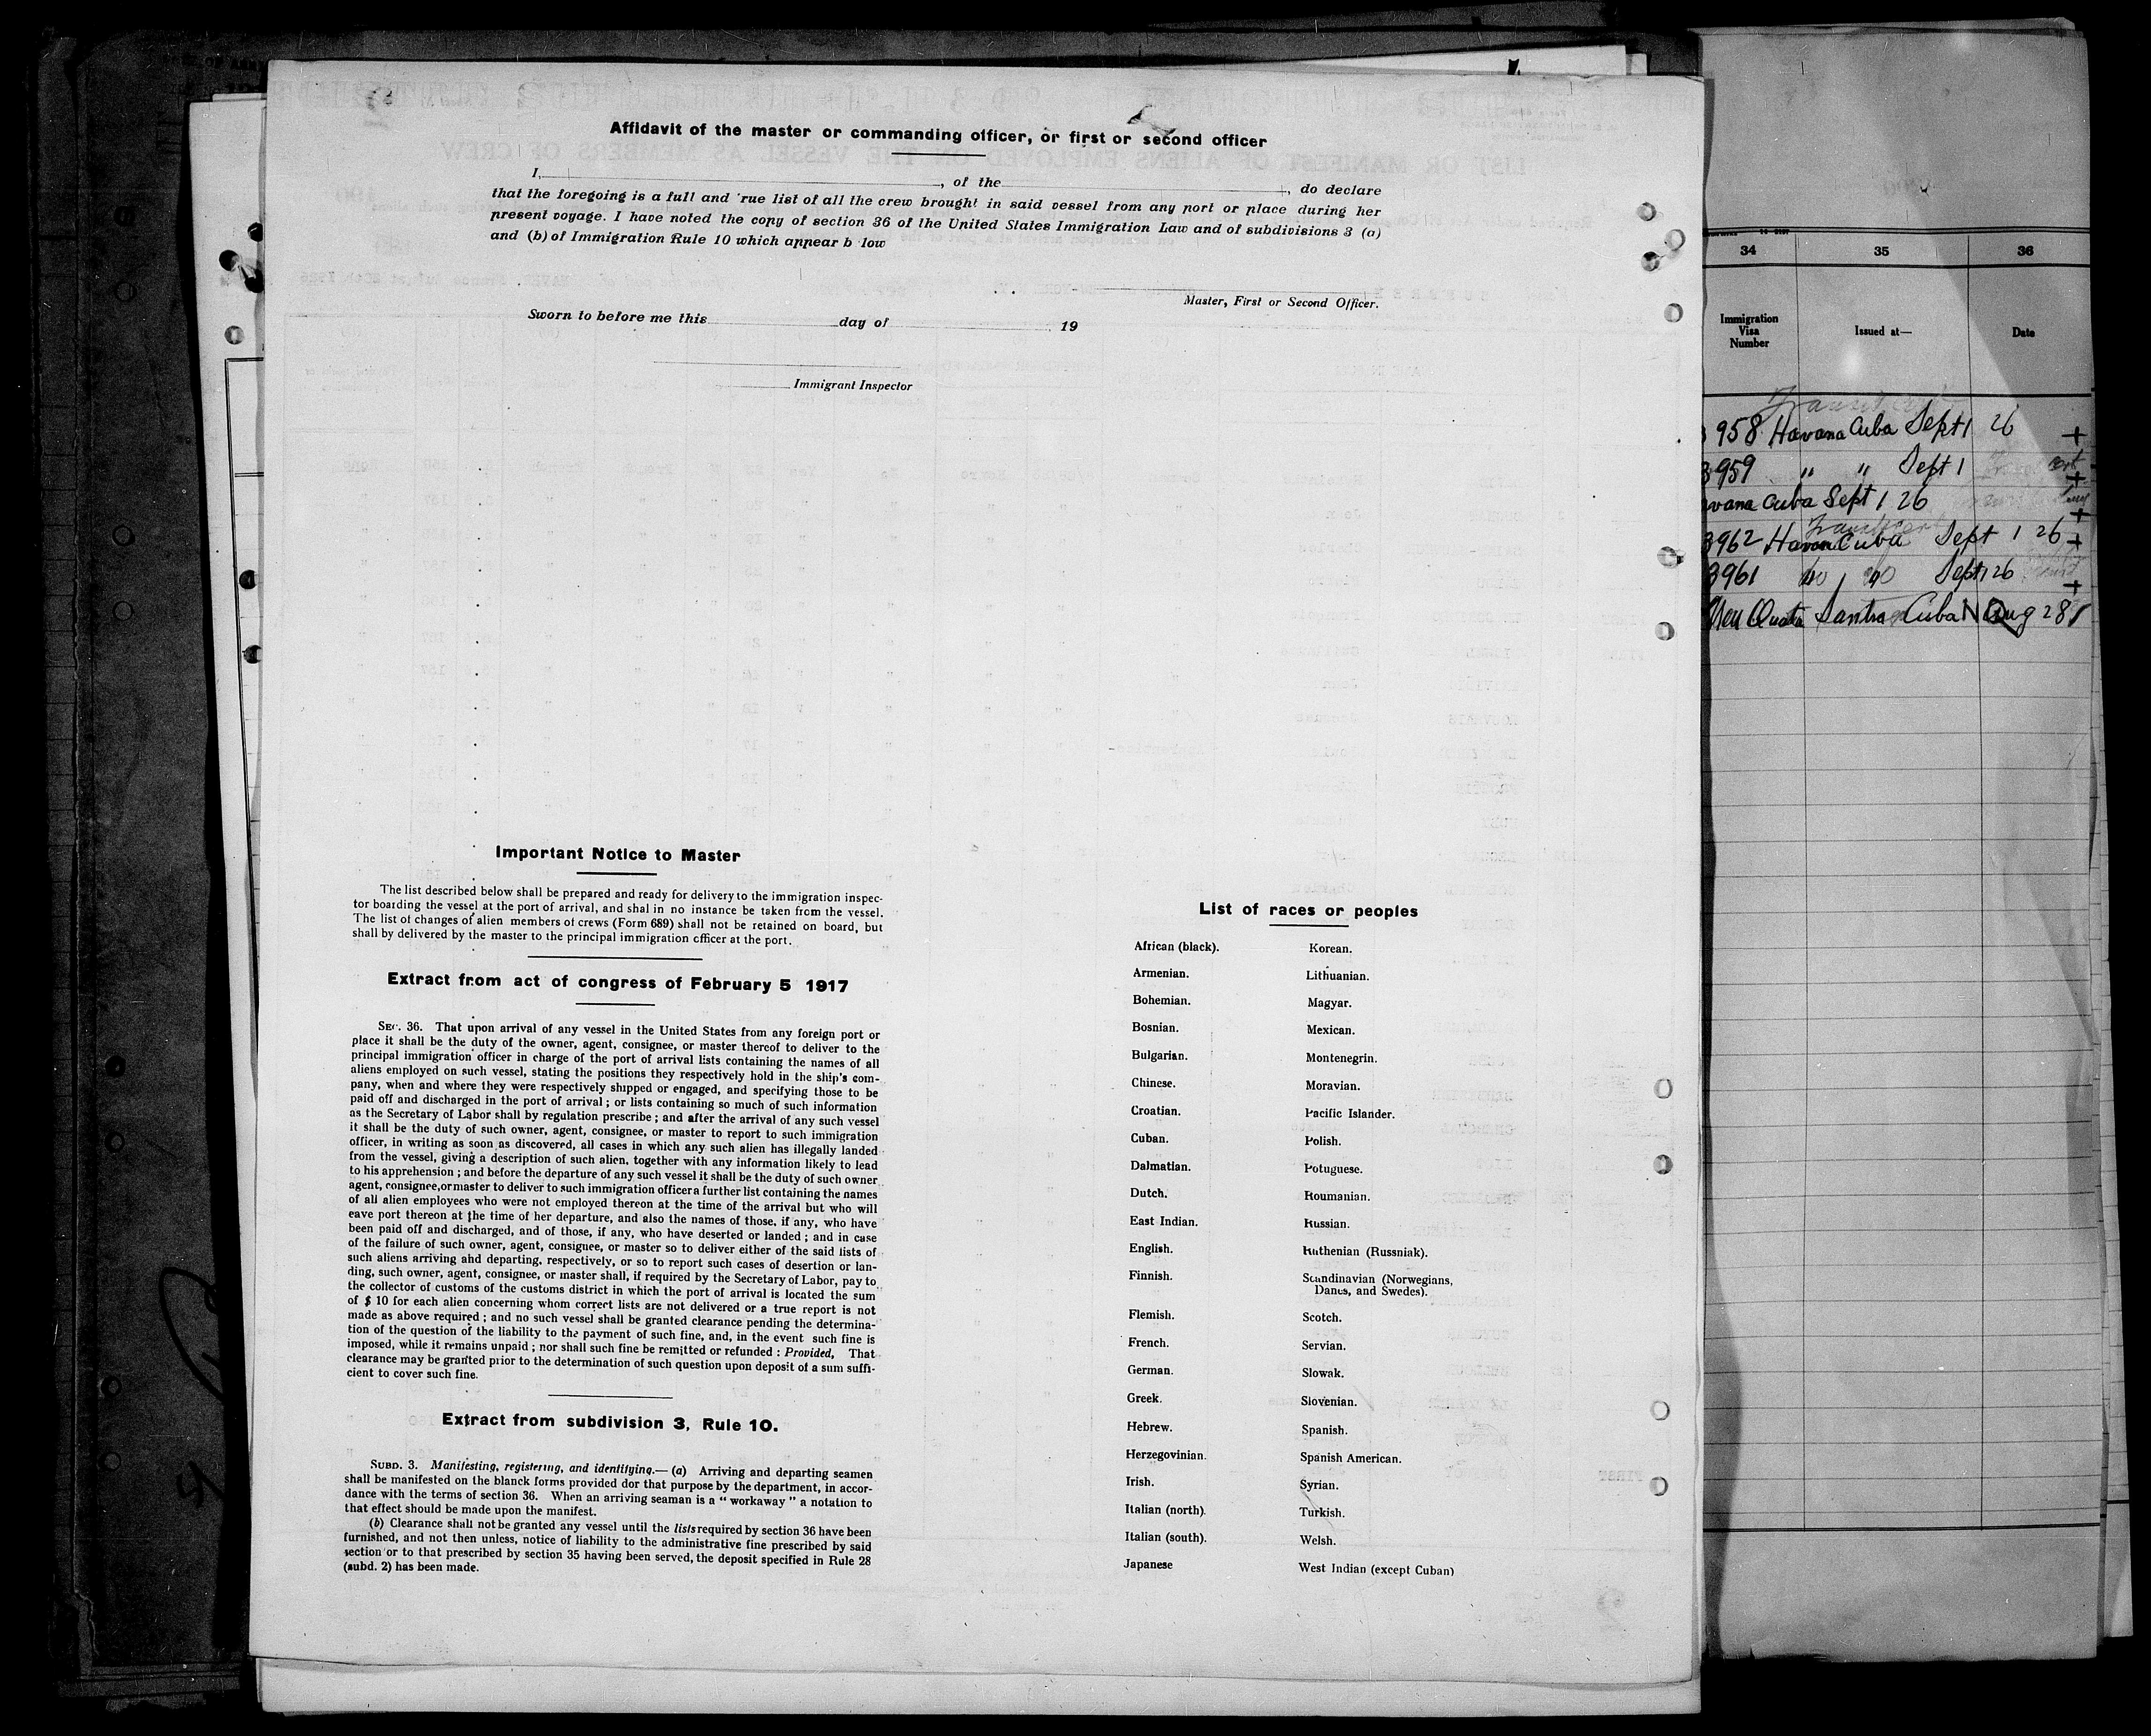 Affidavit of the master or commanding officer, or first or second officer
I, , of the , do declare
that the foregoing is a full and 'rue list of all the crew brought in said vessel from any port or place during her
present voyage. I have noted the copy of section 36 of the United States Immigration Law and of subdivisions 3 (a)
and (b) of Immigration Rule 10 which appear b low
Master, First or Second Officer.
Sworn to before me this day of 19
Immigrant Inspector
Important Notice to Master
The list described below shall be prepared and ready for delivery to the immigration inspec-
tor boarding the vessel at the port of arrival, and shal in no instance be taken from the vessel.
The list of changes of alien members of crews (Form 689) shall not be retained on board, but
shall by delivered by the master to the principal immigration officer at the port.
Extract from act of congress of February 5 1917
SEC. 36. That upon arrival of any vessel in the United States from any foreign port or
place it shall be the duty of the owner, agent, consignee, or master thereof to deliver to the
principal immigration officer in charge of the port of arrival lists containing the names of all
aliens employed on such vessel, stating the positions they respectively hold in the ship's com-
pany, when and where they were respectively shipped or engaged, and specifying those to be
paid off and discharged in the port of arrival ; or lists containing so much of such information
as the Secretary of Labor shall by regulation prescribe ; and after the arrival of any such vessel
it shall be the duty of such owner, agent, consignee, or master to report to such immigration
officer, in writing as soon as discovered, all cases in which any such alien has illegally landed
from the vessel, giving a description of such alien, together with any information likely to lead
to his apprehension ; and before the departure of any such vessel it shall be the duty of such owner
agent, consignee, or master to deliver to such immigration officer a further list containing the names
of all alien employees who were not employed thereon at the time of the arrival but who will
eave port thereon at the time of her departure, and also the names of those, if any, who have
been paid off and discharged, and of those, if any, who have deserted or landed ; and in case
of the failure of such owner, agent, consignee, or master so to deliver either of the said lists of
such aliens arriving ahd departing, respectively, or so to report such cases of desertion or lan-
ding, such owner, agent, consignee, or master shall, if required by the Secretary of Labor, pay to
the collector of customs of the customs district in which the port of arrival is located the sum
of $ 10 for each alien concerning whom correct lists are not delivered or a true report is not
made as above required ; and no such vessel shall be granted clearance pending the determina-
tion of the question of the liability to the payment of such fine, and, in the event such fine is
imposed, while it remains unpaid ; nor shall such fine be remitted or refunded : Provided, That
clearance may be granted prior to the determination of such question upon deposit of a sum suffi-
cient to cover such fine.
Extract from subdivision 3, Rule 10.
SUBD. 3. Manifesting, registering, and identifying.— (a) Arriving and departing seamen
shall be manifested on the blanck forms provided dor that purpose by the department, in accor-
dance with the terms of section 36. When an arriving seaman is a " workaway " a notation to
that effect should be made upon the manifest.
(b) Clearance shall not be granted any vessel until the lists required by section 36 have been
furnished, and not then unless, notice of liability to the administrative fine prescribed by said
section or to that prescribed by section 35 having been served, the deposit specified in Rule 28
(subd. 2) has been made.
List of races or peoples
African (black).
Armenian.
Bohemian.
Bosnian.
Bulgarian.
Chinese.
Croatian.
Cuban.
Dalmatian.
Dutch.
East Indian.
English.
Finnish.
Flemish.
French.
German.
Greek.
Hebrew.
Herzegovinian.
Irish.
Italian (north).
Italian (south).
Japanese
Korean.
Lithuanian.
Magyar.
Mexican.
Montenegrin.
Moravian.
Pacific Islander.
Polish.
Potuguese.
Roumanian.
Russian.
Ruthenian (Russniak).
Scandinavian (Norwegians,
Danes, and Swedes).
Scotch.
Servian.
Slowak.
Slovenian.
Spanish.
Spanish American.
Syrian.
Turkish.
Welsh.
West Indian (except Cuban)
34 35 36
Immigration
Visa
Number
Issued at—
Date
958 Havana Cuba Sept 1 26 +
3959 " " Sept 1 +
vana Cuba Sept 1 26 +
3962 Havana Cuba Sept 1 26 +
3961 Sept 1 26 +
Cuba Aug 28